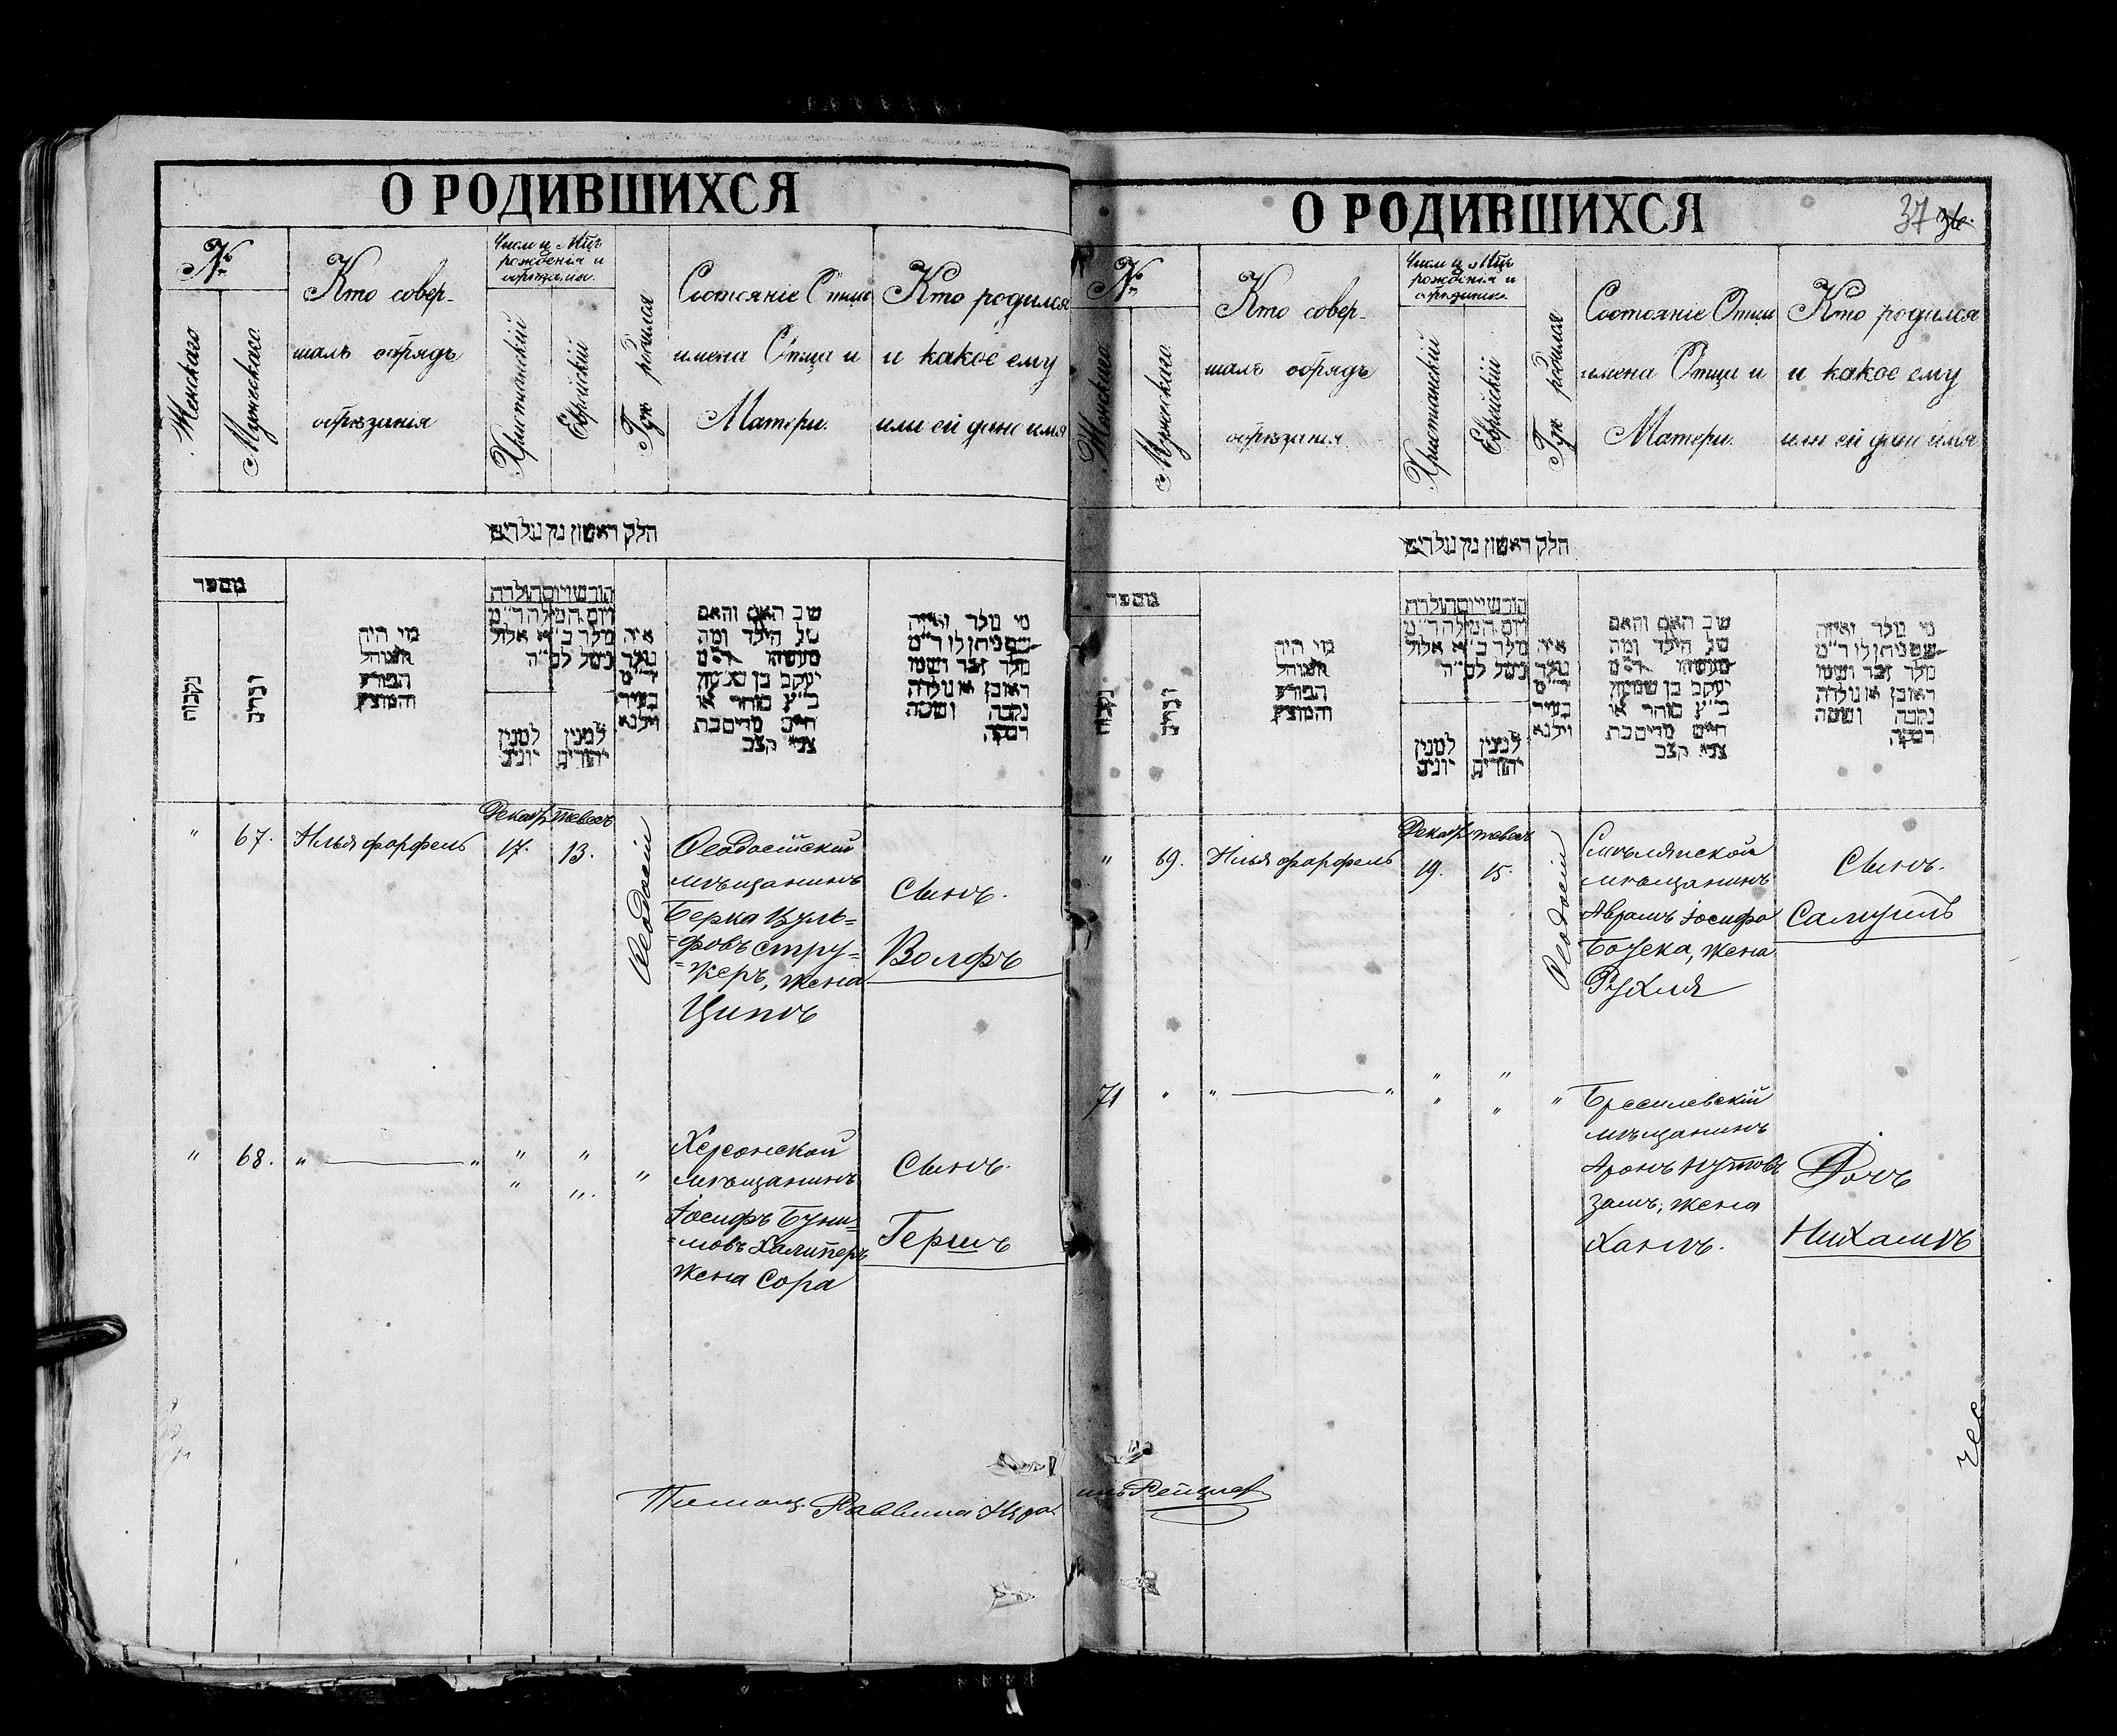 О РОДИВШИХСЯ
№
Женскаго
Мужескаго
Кто совер-
шалъ обрядъ
обрѣзанія
Число и Мцъ
рожденія и
обрѣзанія.
Христіанскій
Еврейскій
Гдѣ родился
Состояніе Отца
имена Отца и
Матери.
Кто родился
и какое ему
или ей дано имя
חלק ראשון מן נולדים
מספר
נקבות
זכרים
מי היה
המוהל
והמוציץ
למנין
יונים
למנין
יהודים
איה
נולד
בעיר
ווילנא
שב האם והאם
של הילד ומה
יעקב בן שמעון
כ״ץ סוחר או
חיים מדים בת
צבי קצב
מי נולד ואיזה
נולד זכר ושמו
ראובן או נולדה
נקבה ושמה
רבקה
" 67. Илья Фарфель
Декабр. Тевесъ
17. 13.
Ѳеодосіи
Ѳеодосійскій
мѣщанинъ
Берка Вуль=
=фовъ Стру=
=жеръ, жена
Ципѣ
Сынъ.
Волфъ
" 68. " — " " " "
Херсонской
мѣщанинъ
Іосифъ Буни=
=мовъ Халиперъ
жена Сора
Сынъ.
Гершъ
Помощ Раввина
О РОДИВШИХСЯ
37
№
Женскаго
Мужескаго
Кто совер-
шалъ обрядъ
обрѣзанія
Число и Мцъ
рожденія и
обрѣзанія
Христіанскій
Еврейскій
Гдѣ родился
Состояніе Отца
имена Отца и
Матери.
Кто родился
и какое ему
или ей дано имя
חלק ראשון מן נולדים
מספר
נקבות
זכרים
מי היה
המוהל
והמוציץ
למנין
יונים
למנין
יהודים
איה
נולד
בעיר
ווילנא
שב האם והאם
של הילד ומה
יעקב בן שמעון
כ״ץ סוחר או
חיים מדים בת
צבי קצב
מי נולד ואיזה
נולד זכר ושמו
ראובן או נולדה
נקבה ושמה
רבקה
" 69. Илья Фарфель
Декабр. Тевесъ
19. 15.
Ѳеодосіи
Смѣлянской
мѣщанинъ
Аврамъ Іосифо
Боуека, жена
Рухля
Сынъ.
Самуилъ
71 " " — " " " "
мѣщанинъ
Аронъ Нутовъ
Залъ, жена
Ханѣ.
Дочь
Нихамѣ